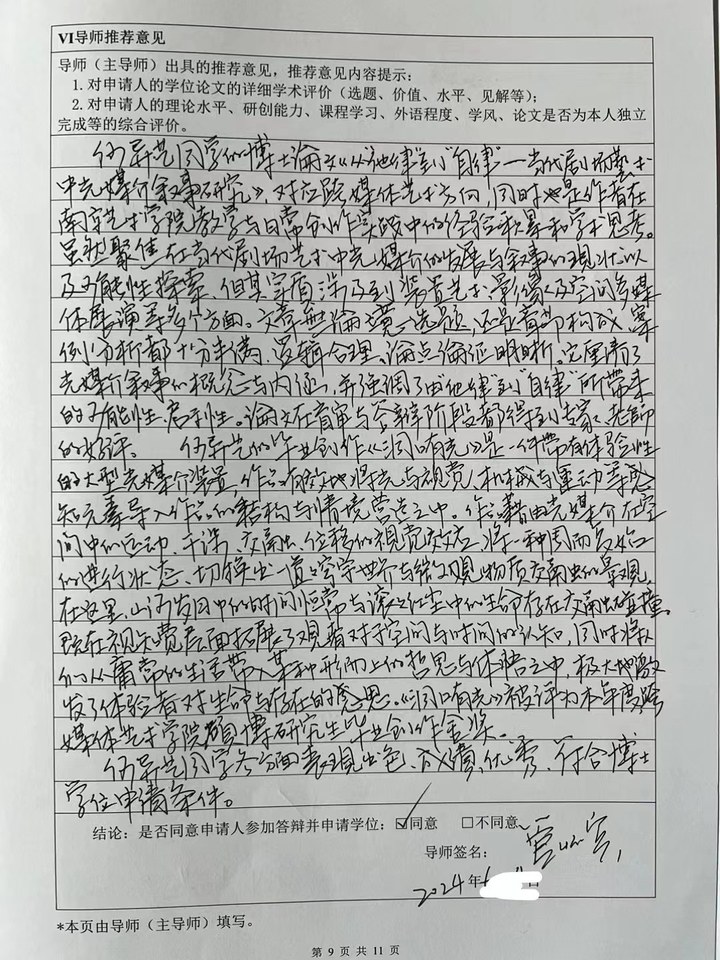 VI导师推荐意见
导师（主导师）出具的推荐意见，推荐意见内容提示：
1. 对申请人的学位论文的详细学术评价（选题、价值、水平、见解等）；
2. 对申请人的理论水平、研创能力、课程学习、外语程度、学风、论文是否为本人独立
完成等的综合评价。
异艺同学的博士论文《从“他律”到“自律”—当代剧场艺术
中光媒介叙事研究》，对应跨媒体艺术方向，同时也是作者在
南京艺术学院教学与日常创作实践中的经验积累和学术思考。
虽然聚焦在当代剧场艺术中光媒介的发展与叙事的现状以
及可能性探索，但其实涉及到装置艺术、影像以及空间多媒
体展演等多个方面。文章无论选题，还是章节构成、案
例分析都十分丰满，逻辑合理、论点论证明晰。它厘清了
光媒介叙事的概念与内涵，并强调了由“他律”到“自律”所带来
的可能性、启发性。论文在盲审与答辩阶段都得到专家、老师
的好评。 异艺的毕业创作《洞有光》是一件带有体验性
的大型光媒介装置，作品有效地将光与视觉、机械与运动等感
知元素导入作品的结构与情境营造之中。作品藉由光媒介在空
间中的运动、干涉、交融、位移的视觉效应，将一种周而复始
的进行状态，切换出一道宇宙世界与微观物质交融的景观，
在这里，山河岁月中的时间恒常与滚滚红尘中的生命存在交融碰撞。
在视知觉层面拓展了观者对于空间与时间的认知，同时将人
们从庸常的生活带入某种形而上的哲思与体悟之中，极大地激
发了体验者对生命与存在的感思。《洞有光》被评为本年度跨
媒体艺术学院硕博研究生毕业创作金奖。
异艺同学各方面表现出色、成绩优秀，符合博士
学位申请条件。
结论：是否同意申请人参加答辩并申请学位：☑同意 □不同意
导师签名：
2024年
*本页由导师（主导师）填写。
第 9 页 共 11 页